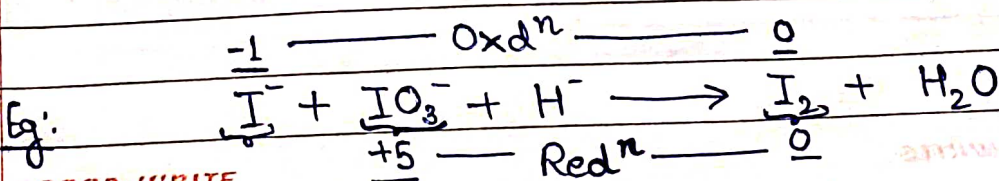 -1 —— Oxdⁿ —— 0
Eg: I⁻ + IO₃⁻ + H⁻ ⟶ I₂ + H₂O
+5 — Redⁿ — 0